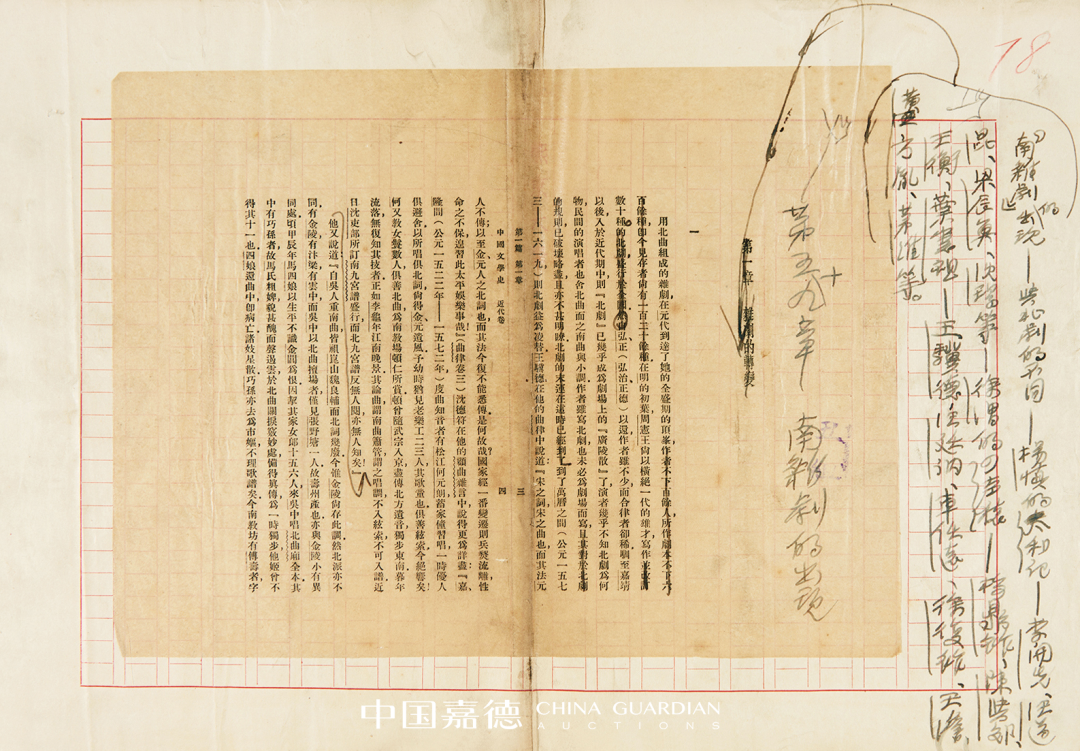 78
南雜劇的出現—與北劇的不同—楊慎的太和記—李開先、汪道
昆、梁辰魚、沈璟等—徐渭的四聲猿—
王衡、葉憲祖—王驥德、汪廷訥、車任遠、徐復祚、王澹、
黃方胤、茅維等。
第五十九章 南雜劇的出現
第一章 雜劇的轉變
一
用北曲組成的雜劇在元代到達了她的全盛期的頂峯作者不下百餘人所作劇本不下六
百餘種卽今見存者尙有一百二十餘種在明的初葉周憲王尙以橫絕一代的雄才寫作並改訂
數十種的北劇盛行於全國弘正(弘治正德)以還作者雖不少而合律者卻稀覯至嘉靖
以後入於近代期中則『北劇』已幾乎成爲劇場上的『廣陵散』了演者幾乎不知北劇爲何
物民間的演唱者也舍北曲而之南曲與小調作者雖寫北劇也未必爲劇場而寫且其對於北劇
的規則已破壞略盡且亦不甚明瞭北劇的末運在這時已經到了到了萬曆之間(公元一五七
三——一六一九)則北劇益爲凌替王驥德在他的曲律中說道『宋之詞宋之曲也而其法元
第一篇 第一章
三
中國文學史 近代卷
四
人不傳以至金元人之北詞也而其法今復不能悉傳是何故哉國家經一番變遷則兵燹流離性
命之不保遑習此太平娛樂事哉』(曲律卷三)沈德符在他的顧曲雜言中說得更爲詳盡『嘉
隆間(公元一五二二年——一五七二年)度曲知音者有松江何元朗蓄家僮習唱一時優人
俱避舍以所唱俱北詞尙得金元遺風予幼時猶見老樂工二三人其歌童也俱善絃索今絕響矣
何又敎女鬟數人俱善北曲爲南敎坊頓仁所賞頓曾隨武宗入京盡傳北方遺音獨步東南暮年
流落無復知其技者正如李龜年江南晚景其論曲謂南曲簫管謂之唱調不入絃索不可入譜近
日沈吏部所訂南九宮譜盛行而北九宮譜反無人問亦無人知矣』
他又說道『自吳人重南曲皆祖崑山魏良輔而北詞幾廢今惟金陵尙存此調然北派亦不
同有金陵有汴梁有雲中而吳中以北曲擅場者僅見張野塘一人故壽州產也亦與金陵小有異
同處頃甲辰年馬四娘以生平不識金閶爲恨因挈其家女郎十五六人來吳中唱北曲廂全本其
中有巧孫者故馬氏粗婢貌甚醜而聲遏雲於北曲關捩竅妙處備得眞傳爲一時獨步他姬曾不
得其十一也四娘還曲中卽病亡諸妓星散巧孫亦去爲市嫗不理歌譜矣今南敎坊有傅壽者字
中国嘉德 CHINA GUARDIAN
AUCTIONS